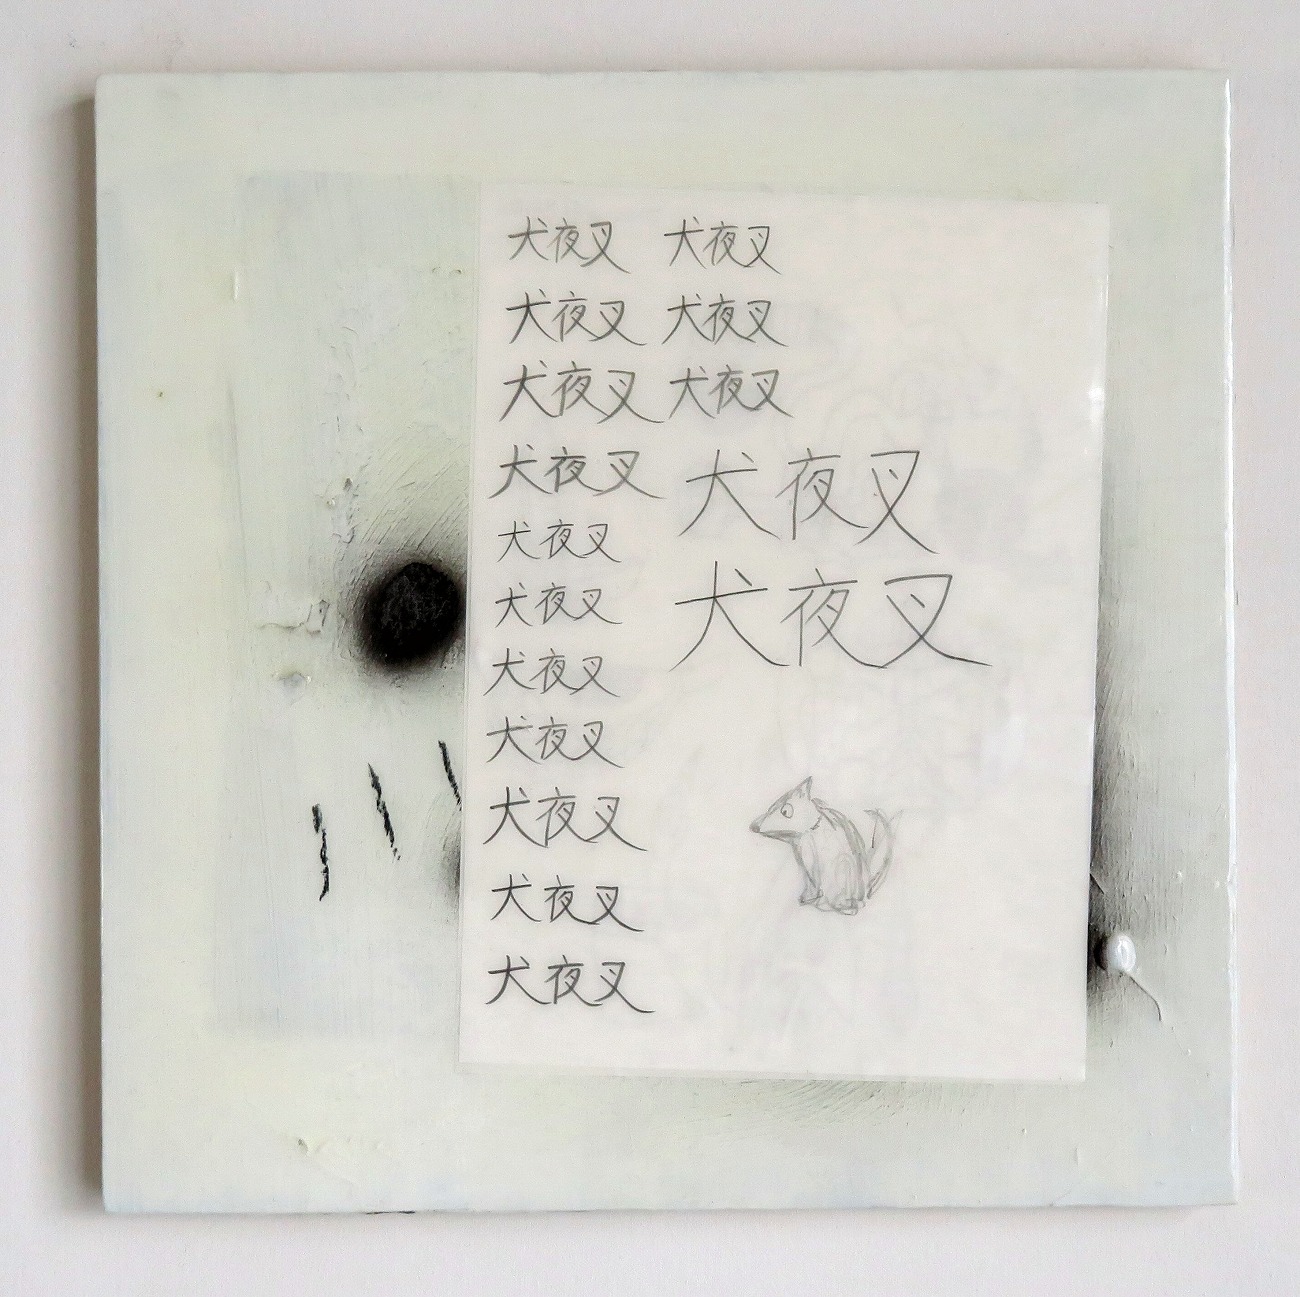 犬夜叉 犬夜叉
犬夜叉 犬夜叉
犬夜叉 犬夜叉
犬夜叉 犬夜叉
犬夜叉
犬夜叉 犬夜叉
犬夜叉
犬夜叉
犬夜叉
犬夜叉
犬夜叉